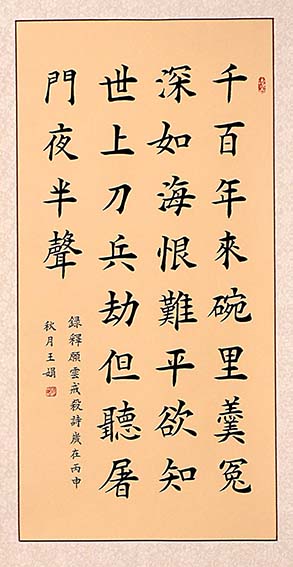 千百年來碗里羹冤
深如海恨難平欲知
世上刀兵劫但聽屠
門夜半聲
錄釋願雲戒殺詩歲在丙申
秋月王娟